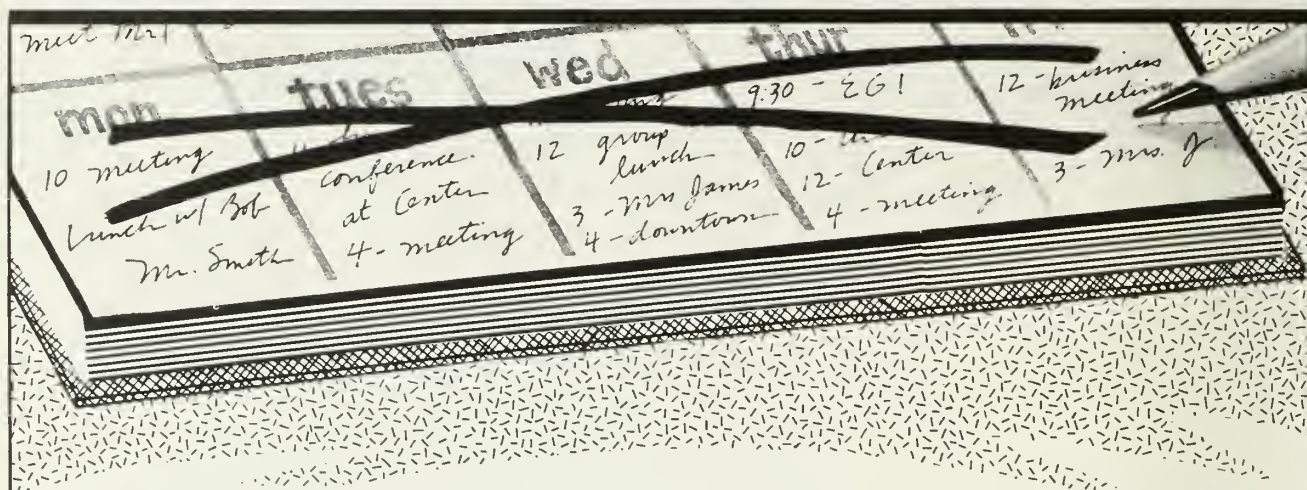 meet Mr
mon
10 meeting
Lunch w/ Bob
Mr. Smith
tues
conference
at Center
4 - meeting
wed
12 group
lunch
3 - Mrs James
4 - downtown
thur
9:30 - EG!
10 -
12 - Center
4 - meeting
12 - business
meeting
3 - Mrs. J.